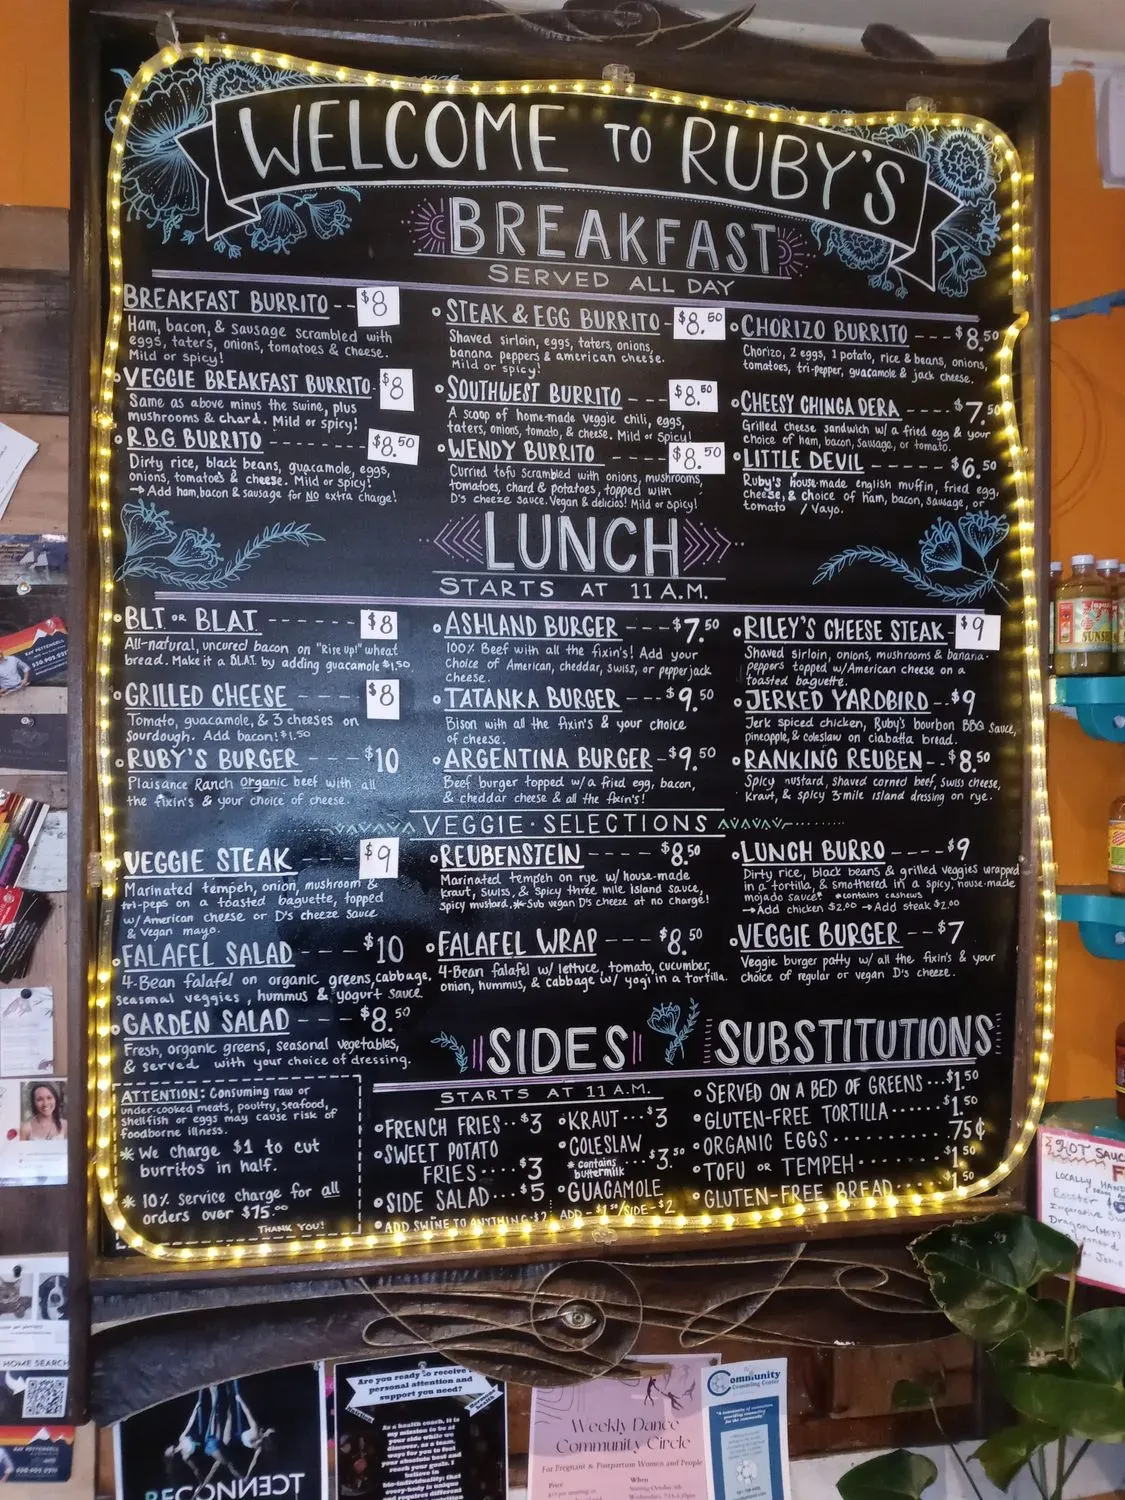 WELCOME TO RUBY'S
BREAKFAST
SERVED ALL DAY
BREAKFAST BURRITO -- $8
Ham, bacon, & sausage scrambled with
eggs, taters, onions, tomatoes & cheese.
Mild or spicy!
VEGGIE BREAKFAST BURRITO- $8
Same as above minus the swine, plus
mushrooms & chard. Mild or spicy!
R.B.G BURRITO ------ $8.50
Dirty rice, black beans, guacamole, eggs,
onions, tomatoes & cheese. Mild or spicy!
→ Add ham, bacon & sausage for NO extra charge!
STEAK & EGG BURRITO- $8.50
Shaved sirloin, eggs, taters, onions,
banana peppers & american cheese.
Mild or spicy!
SOUTHWEST BURRITO --- $8.50
A scoop of home-made veggie chili, eggs,
taters, onions, tomato, & cheese. Mild or Spicy!
WENDY BURRITO ---- $8.50
Curried tofu scrambled with onions, mushrooms,
tomatoes, chard & potatoes, topped with
D's cheeze sauce. Vegan & delicios! Mild or spicy!
CHORIZO BURRITO --- $8.50
Chorizo, 2 eggs, 1 potato, rice & beans, onions,
tomatoes, tri-pepper, guacamole & jack cheese.
CHEESY CHINGADERA ---- $7.50
Grilled cheese sandwich w/ a fried egg & your
choice of ham, bacon, sausage, or tomato.
LITTLE DEVIL ----- $6.50
Ruby's house-made english muffin, fried egg,
cheese, & choice of ham, bacon, sausage, or
tomato / Vayo.
LUNCH
STARTS AT 11 A.M.
BLT OR BLAT ---- $8
All-natural, uncured bacon on "Rise up!" wheat
bread. Make it a BLAT by adding guacamole $1.50
GRILLED CHEESE --- $8
Tomato, guacamole, & 3 cheeses on
sourdough. Add bacon! $1.50
RUBY'S BURGER --- $10
Plaisance Ranch Organic beef with all
the fixin's & your choice of cheese.
ASHLAND BURGER --- $7.50
100% Beef with all the fixin's! Add your
choice of American, cheddar, swiss, or pepperjack
cheese.
TATANKA BURGER --- $9.50
Bison with all the fixin's & your choice
of cheese.
ARGENTINA BURGER - $9.50
Beef burger topped w/a fried egg, bacon,
& cheddar cheese & all the fixin's!
RILEY'S CHEESE STEAK- $9
Shaved sirloin, onions, mushrooms & banana-
peppers topped w/American cheese on a
toasted baguette.
JERKED YARDBIRD-- $9
Jerk spiced chicken, Ruby's bourbon BBQ sauce,
pineapple, & coleslaw on ciabatta bread.
RANKING REUBEN-- $8.50
Spicy mustard, shaved corned beef, Swiss cheese,
Kraut, & spicy 3-mile island dressing on rye.
VEGGIE·SELECTIONS
VEGGIE STEAK --- $9
Marinated tempeh, onion, mushroom &
tri-peps on a toasted baguette, topped
w/ American cheese or D's cheeze sauce
& Vegan mayo.
FALAFEL SALAD --- $10
4-Bean falafel on organic greens, cabbage,
seasonal veggies, hummus & yogurt sauce
GARDEN SALAD --- $8.50
Fresh, organic greens, seasonal vegetables,
& served with your choice of dressing.
REUBENSTEIN ---- $8.50
Marinated tempeh on rye w/ house-made
kraut, Swiss, & Spicy three mile island sauce,
spicy mustard. * Sub vegan D's cheeze at no charge!
FALAFEL WRAP --- $8.50
4-Bean falafel w/ lettuce, tomato, cucumber,
onion, hummus, & cabbage w/ yogi in a tortilla.
LUNCH BURRO --- $9
Dirty rice, black beans & grilled veggies wrapped
in a tortilla, & smothered in a spicy, house-made
mojado sauce* *contains cashews
→ Add chicken $2.00 → Add steak $2.00
VEGGIE BURGER -- $7
Veggie burger patty w/ all the fixin's & your
choice of regular or vegan D's cheeze.
ATTENTION: Consuming raw or
under-cooked meats, poultry, seafood,
shellfish or eggs may cause risk of
foodborne illness.
* We charge $1 to cut
burritos in half.
* 10% service charge for all
orders over $75.00
THANK YOU!
SIDES
STARTS AT 11 A.M.
FRENCH FRIES·· $3
SWEET POTATO
FRIES···· $3
SIDE SALAD··· $5
KRAUT··· $3
COLESLAW
* contains
buttermilk
$3.50
GUACAMOLE
ADD - $1.50/SIDE - $2
ADD SWINE TO ANYTHING·$2
SUBSTITUTIONS
SERVED ON A BED OF GREENS··· $1.50
GLUTEN-FREE TORTILLA······ $1.50
ORGANIC EGGS·········· 75¢
TOFU OR TEMPEH········ $1.50
GLUTEN-FREE BREAD····· $1.50
HOT SAUC
LOCALLY HAND
HOME SEARCH
RAY PETTENGELL
RECONNECT
Are you ready to receive
personal attention and
support you need?
As a health coach, it is
my mission to be at
your side while we
Weekly Dance
Community Circle
For Pregnant & Postpartum Women and People
Price
When
Community
Counseling Center